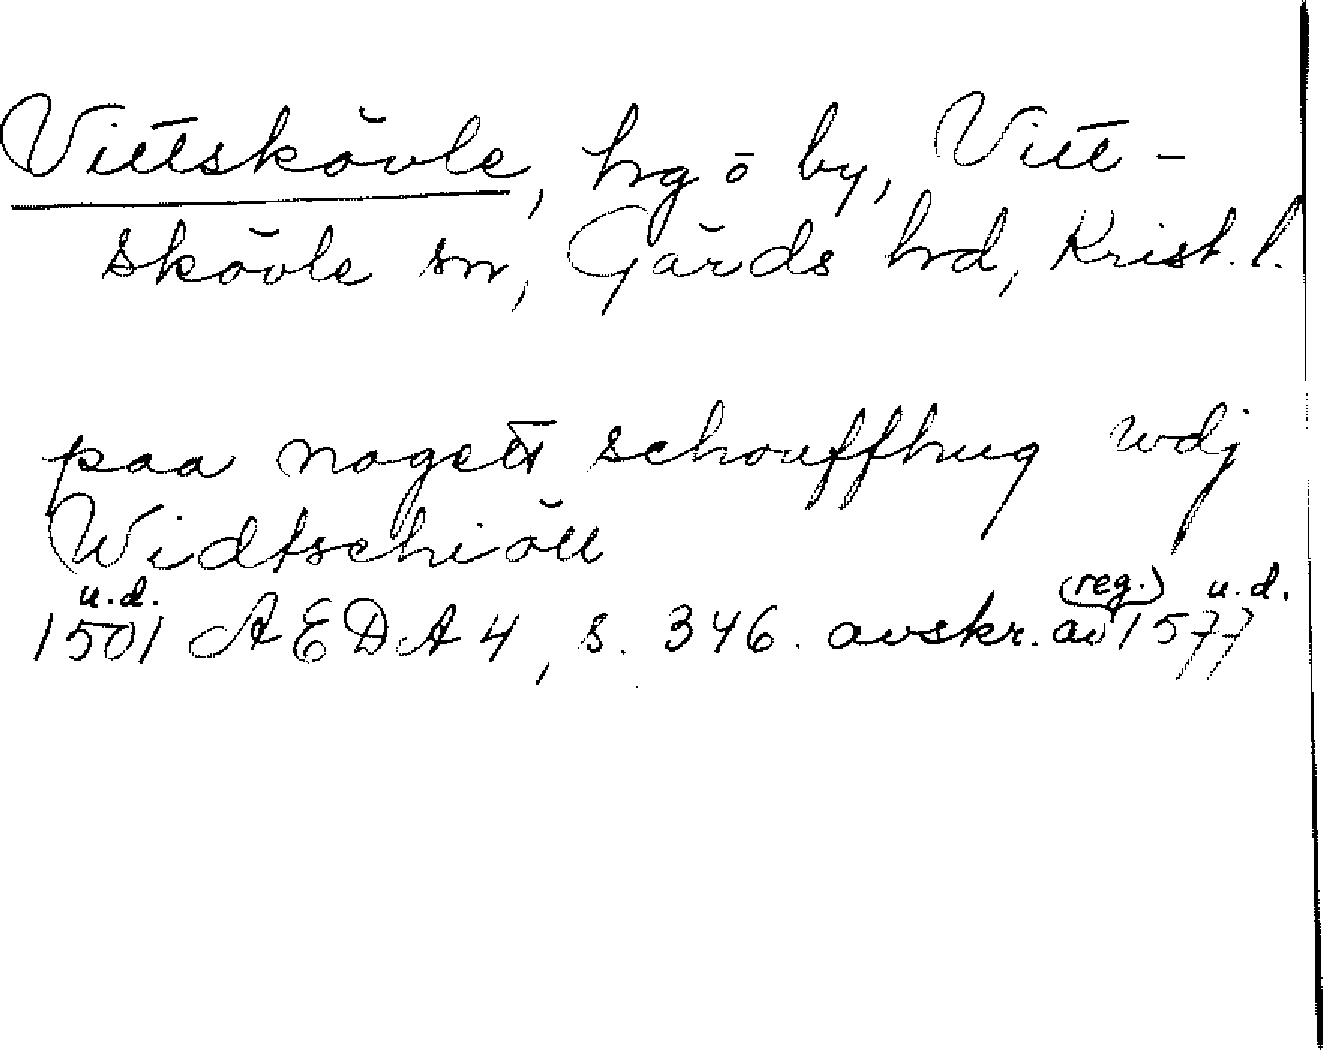 Vittskövle, hrg o by, Vitt-
skövle sn, Gärds hd, Krist. l.
paa nogett schouffhug wdj
Widtschiöll
u.d. (reg.) u.d.
1501 AEDA 4, s. 346. avskr. av 1577